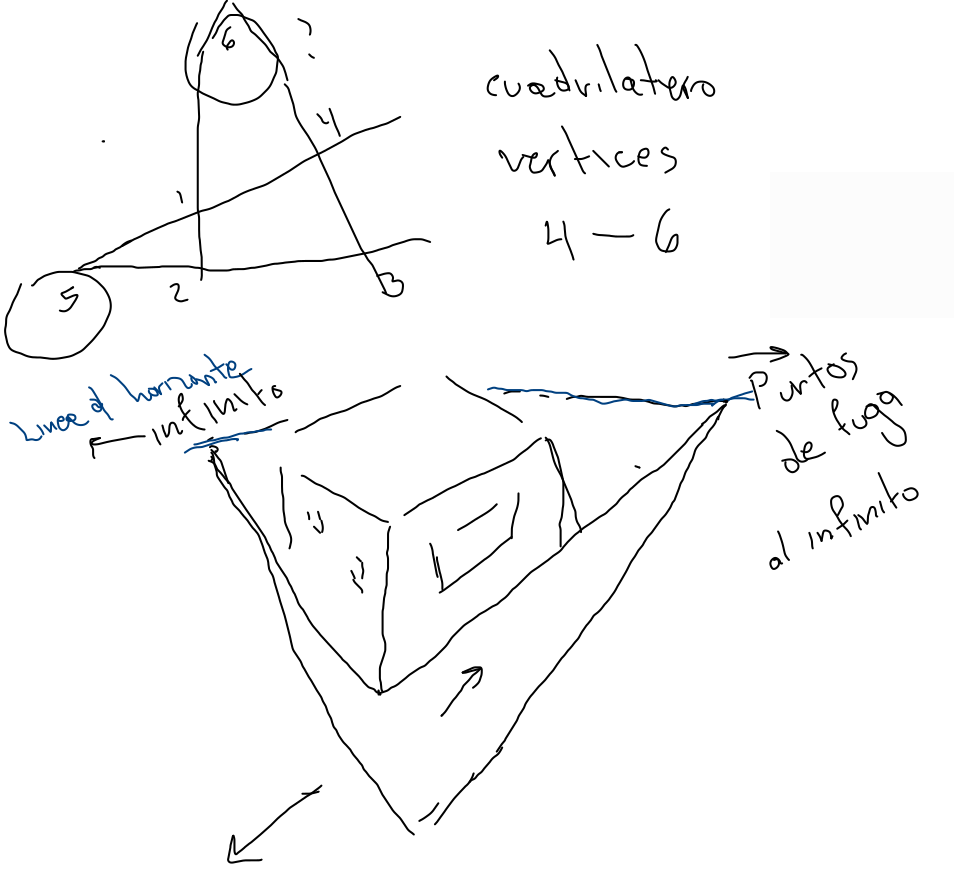 6
?
4
1
5
2
3
cuadrilatero
vertices
4 — 6
Linea d horizonte
infinito
Puntos
de fuga
al infinito